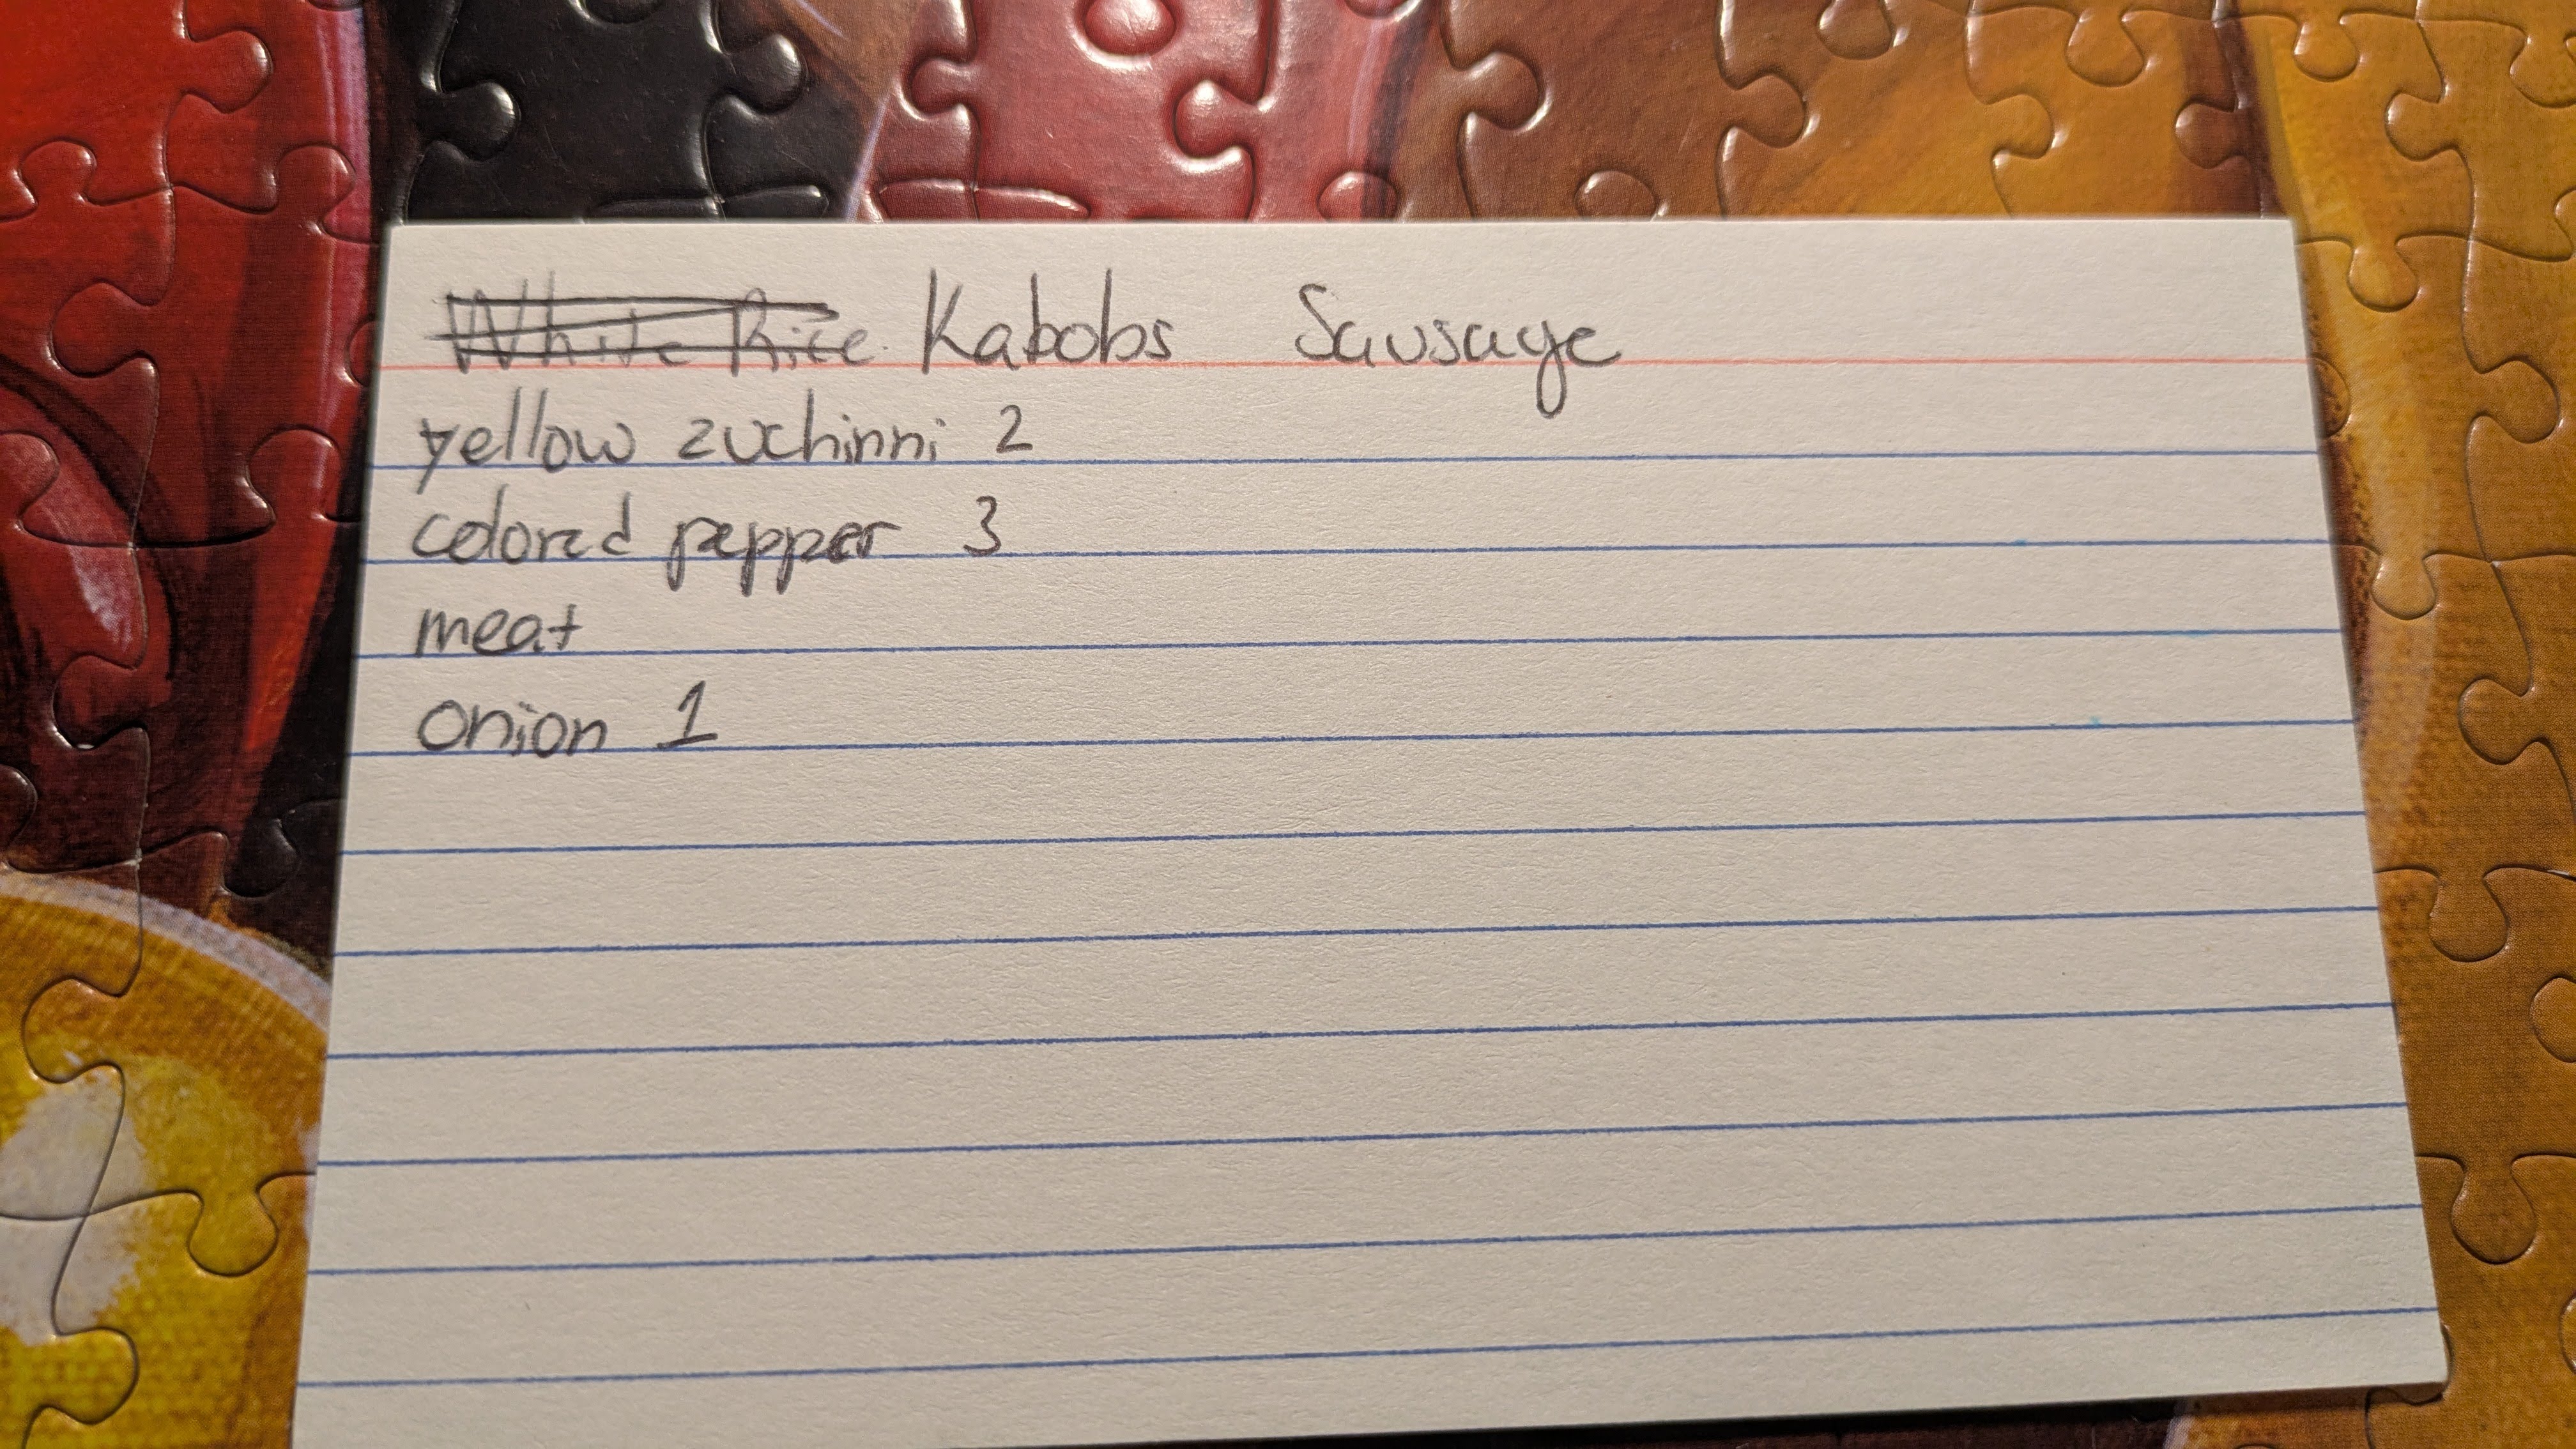 White Rice Kabobs Sausage
yellow zuchinni 2
colored pepper 3
meat
onion 1